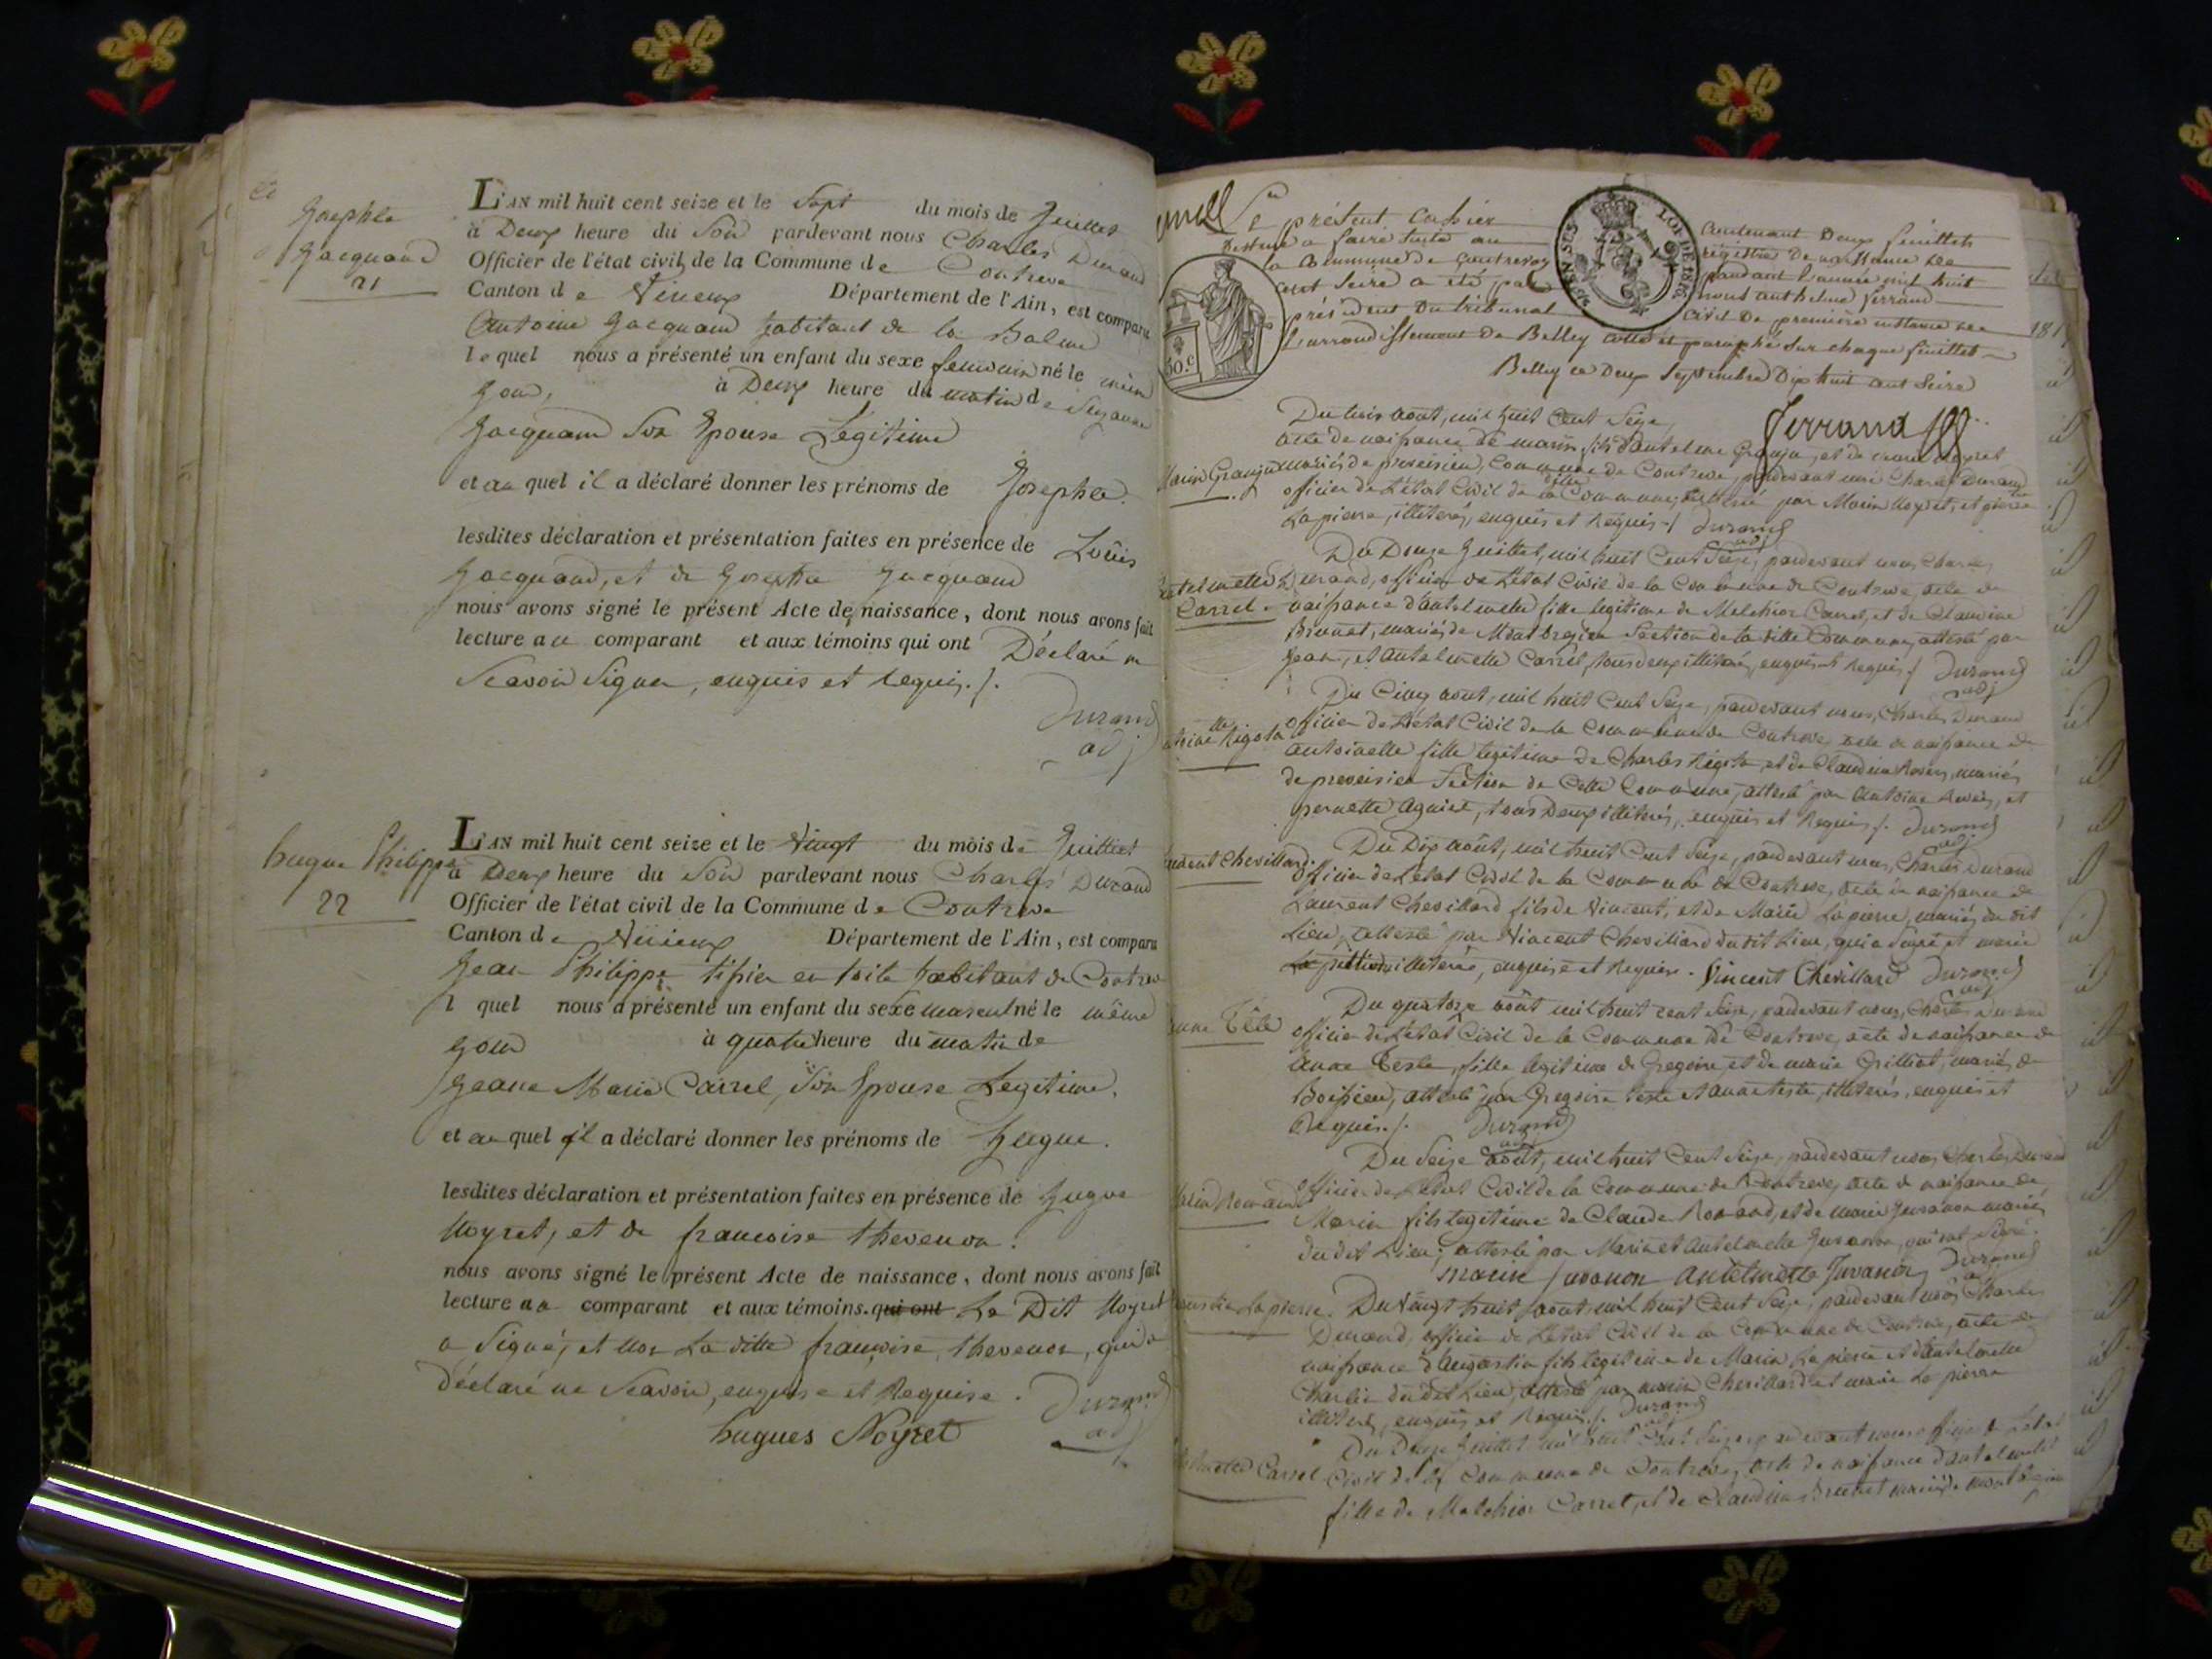 Josephte
Jacquand
21
L'AN mil huit cent seize et le Sept du mois de Juillet
à Deux heure du Soir pardevant nous Charles Durand
Officier de l'état civil de la Commune de Contreve
Canton de Virieux Département de l'Ain, est comparu
Antoine Jacquand habitant de la Balme
lequel nous a présenté un enfant du sexe feminin né le même
jour, à Deux heure du matin de Suzanne
Jacquand Son Epouse Légitime
et au quel il a déclaré donner les prénoms de Josephte.
lesdites déclaration et présentation faites en présence de Loüis
Jacquand, et de Josephte Jacquand
nous avons signé le présent Acte de naissance, dont nous avons fait
lecture au comparant et aux témoins qui ont Déclaré ne
Scavoir Signer, enquis et requis ./.
Durand
adj
hugue Philippe
22
L'AN mil huit cent seize et le Vingt du mois de Juilliet
à Deux heure du Soir pardevant nous Charles Durand
Officier de l'état civil de la Commune de Contreve
Canton de Virieux Département de l'Ain, est comparu
Jean Philippe tissier en toile habitant de Contreve
l quel nous a présenté un enfant du sexe masculin né le même
jour à quatre heure du matin de
Jeane Marie Carrel, Son Epouse Legitime.
et au quel il a déclaré donner les prénoms de hugue.
lesdites déclaration et présentation faites en présence de hugue
Noyret, et de francoise thevenon.
nous avons signé le présent Acte de naissance, dont nous avons fait
lecture au comparant et aux témoins. qui ont Le Dit Noyret
a Signé, et non La ditte françoise thevenon, qui a
déclaré ne Scavoir, enquise et Requise. Durand
adj
hugues Noyret
Le présent Cahier contenant Deux feuillets
destiné a faire suite au registre de naissance de
la Commune de Contrevoz pendant l'année mil huit
cent Seize a été par nous anthelme ferrand
président du tribunal civil De première instance de
L'arrondissement de Belley cotté et paraphé Sur chaque feuillet
Belley ce Deux Septembre Dix huit cent Seize
ferrand
LOI DE 1816.
50.c
Marin Granju
Du trois août, mil huit Cent Seize,
acte de naissance de marin fils d'antelme Granju, et de marie Noyret
mariés de preveisieu, Commune de Contreve, pardevant moi Charles Durand
officier de L'état Civil de la ditte Commune, attesté par Marin Noyret, et pierre
Lapierre, illiterés, enquis et Requis ./. Durand
adj
Antelmette
Carrel
Du Douze Juillet, mil huit Cent Seize, pardevant nous Charles
Durand, officier de L'état Civil de la Commune de Contreve, acte de
naissance d'antelmette fille legitime de Melchior Carrel, et de Claudine
Brunet, mariés de Montbregieu Section de la ditte Commune, attesté par
Jean, et Antelmette Carrel, tous deux illiterés, enquis et Requis ./. Durand
adj
Du Cinq août, mil huit Cent Seize, pardevant nous, Charles Durand
officier de L'état Civil de la Commune de Contreve, acte de naissance de
antoinette fille legitime de Charles Rigota, et de Claudine Avoies, mariés
de preveisieu Section de Cette Commune, attesté par Antoine Avoies, et
pernette Aguiet, tous Deux illiterés, enquis et Requis ./. Durand
adj
Laurent Chevillard
Du Dix août, mil huit Cent Seize, pardevant nous, Charles Durand
officier de L'état Civil de la Commune de Contreve, acte de naissance de
Laurent Chevillard fils de Vincent, et de Marie Lapierre, mariés du dit
Lieu, attesté par Vincent Chevillard du dit Lieu, qui a Signé et marie
illiterée, enquise et Requise. Vincent Chevillard Durand
adj
anne Tête
Du quatorze août mil huit cent Seize, pardevant nous, Charles Durand
officier de L'état Civil de la Commune de Contreve, acte de naissance de
Anne Teste, fille legitime de Gregoire et de marie Grilliet, mariés de
Boissieu, attesté par Gregoire teste et anne teste, illiterés, enquis et
Requis ./. Durand
adj
Marin Romand
Du Seize août, mil huit Cent Seize, pardevant nous Charles Durand
officier de L'état Civil de la Commune de Contreve, acte de naissance de
Marin fils legitime de Claude Romand, et de marie Juvanon mariés
du dit Lieu; attesté par Marin et Antelmette Juvanon, qui ont Signé.
marin juvanon Antelmette Juvanon Durand
adj
augustin Lapierre.
Du Vingt huit août mil huit Cent Seize, pardevant nous Charles
Durand, officier de L'état Civil de la Commune de Contreve, acte de
naissance d'augustin fils legitime de Marin Lapierre et d'antelmette
Charlin du dit Lieu, attesté par marin Chevillard et marie Lapierre
illiterés, enquis et Requis ./. Durand
adj
antelmette Carrel
Du Douze Juillet mil huit Cent Seize, pardevant nous officier de L'état
Civil de la Commune de Contreve, acte de naissance d'antelmette
fille de Melchior Carrel, et de Claudine Brunet mariés de montbregieu